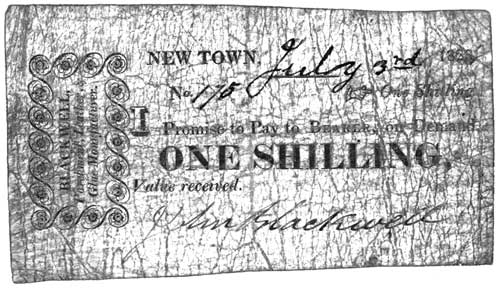 NEW TOWN, July 3rd 182
No. 175 One Shilling
I Promise to Pay to BEARER, on Demand
ONE SHILLING,
Value received.
John Blackwell
BLACKWELL,
Leather,
Glue Manufacturer.